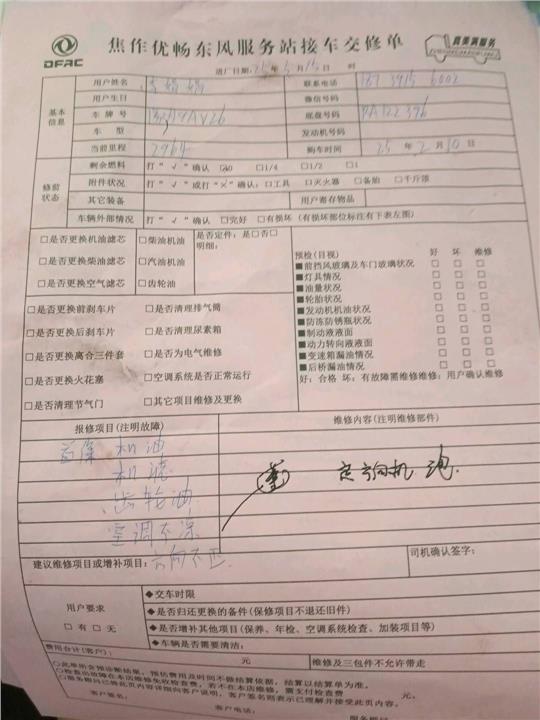 DFAC
焦作优畅东风服务站接车交修单
真美满服务
进厂日期：25年5月15日 时
基本信息
用户姓名 李娟娟 联系电话
用户生日 微信号码
车牌号 底盘号码 PA122396
车型 发动机号码
当前里程 7964 购车时间 25年2月10日
修前状态
剩余燃料 打“√”确认 □0 □1/4 □1/2 □1
附件状况 打“√”或打“×”确认：□工具 □灭火器 □备胎 □千斤顶
其它装备 用户寄存物品
车辆外部情况 打“√”确认 □完好 □有损坏（有损坏部位标注有下表左图）
□是否更换机油滤芯 □柴油机油 是否定件：是□否□
明细：
□是否更换柴油滤芯 □汽油机油
□是否更换空气滤芯 □齿轮油
预检（目视） 好 坏 维修
■前挡风玻璃及车门玻璃状况 □ □ □
■灯具情况 □ □ □
■油量状况 □ □ □
■轮胎状况 □ □ □
■发动机机油状况 □ □ □
■防冻防锈瓶状况 □ □ □
■制动液液面 □ □ □
■动力转向液液面 □ □ □
■变速箱漏油情况 □ □ □
■后桥漏油情况 □ □ □
好：合格 坏：有故障需维修维修：用户确认维修
□是否更换前刹车片 □是否清理排气筒
□是否更换后刹车片 □是否清理尿素箱
□是否更换离合三件套 □是否为电气维修
□是否更换火花塞 □空调系统是否正常运行
□是否清理节气门 □其它项目维修及更换
报修项目（注明故障） 维修内容（注明维修部件）
首保 机油
机滤
齿轮油
空调不凉
方向不正
方向机
建议维修项目或增补项目： 司机确认签字：
用户要求
□有 □无
◆交车时限
◆是否归还更换的备件（保修项目不退还旧件）
◆是否增补其他项目（保养、年检、空调系统检查、加装项目等）
◆车辆是否需要清洁：
费用合计（客户）： 元 维修及三包件不允许带走
○此单所含预诊断结果，预估费用及时间不做结算依据，结算以结算单为准。
○检查出故障在本店维修免收检查费，若不在本店维修，需支付检查费 元。
○服务顾问已将此页内容详细向客户说明，客户签名则表示已理解并接受此页内容。
客户签名：
客户电话： 服务顾问